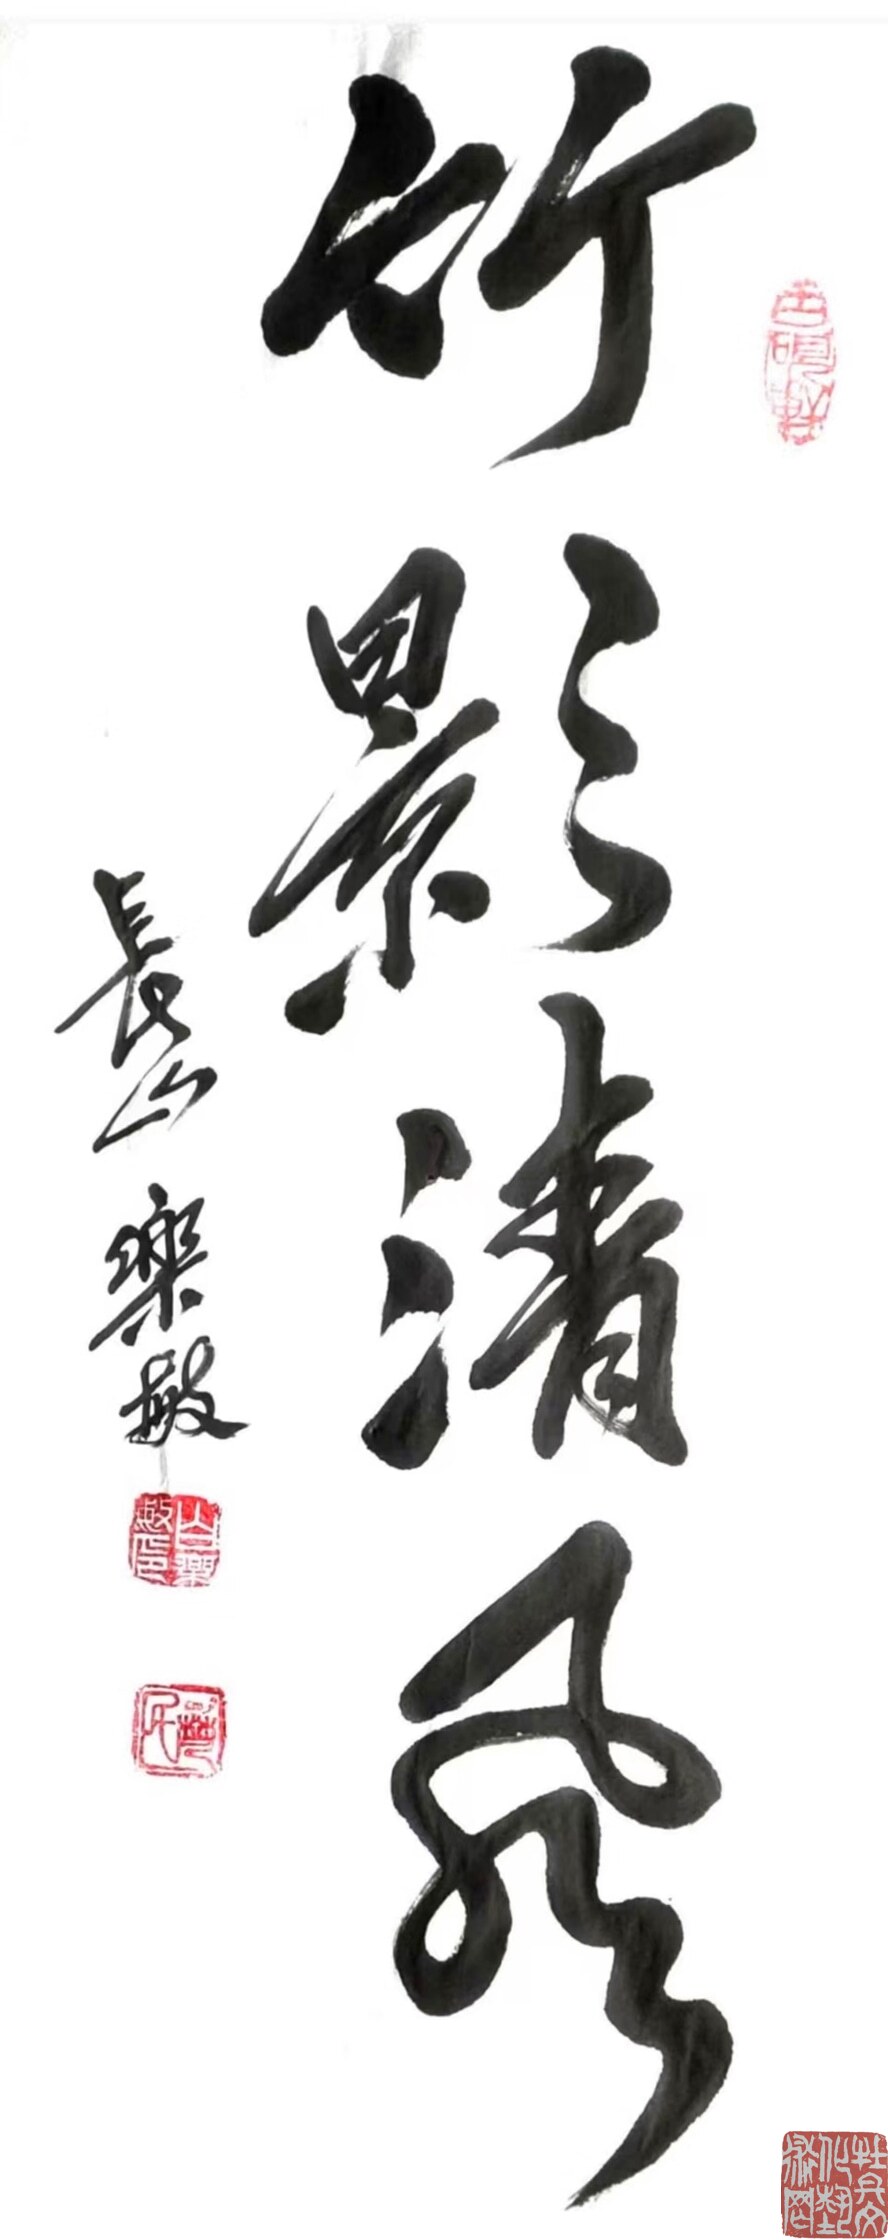 竹影清風
長山樂敏